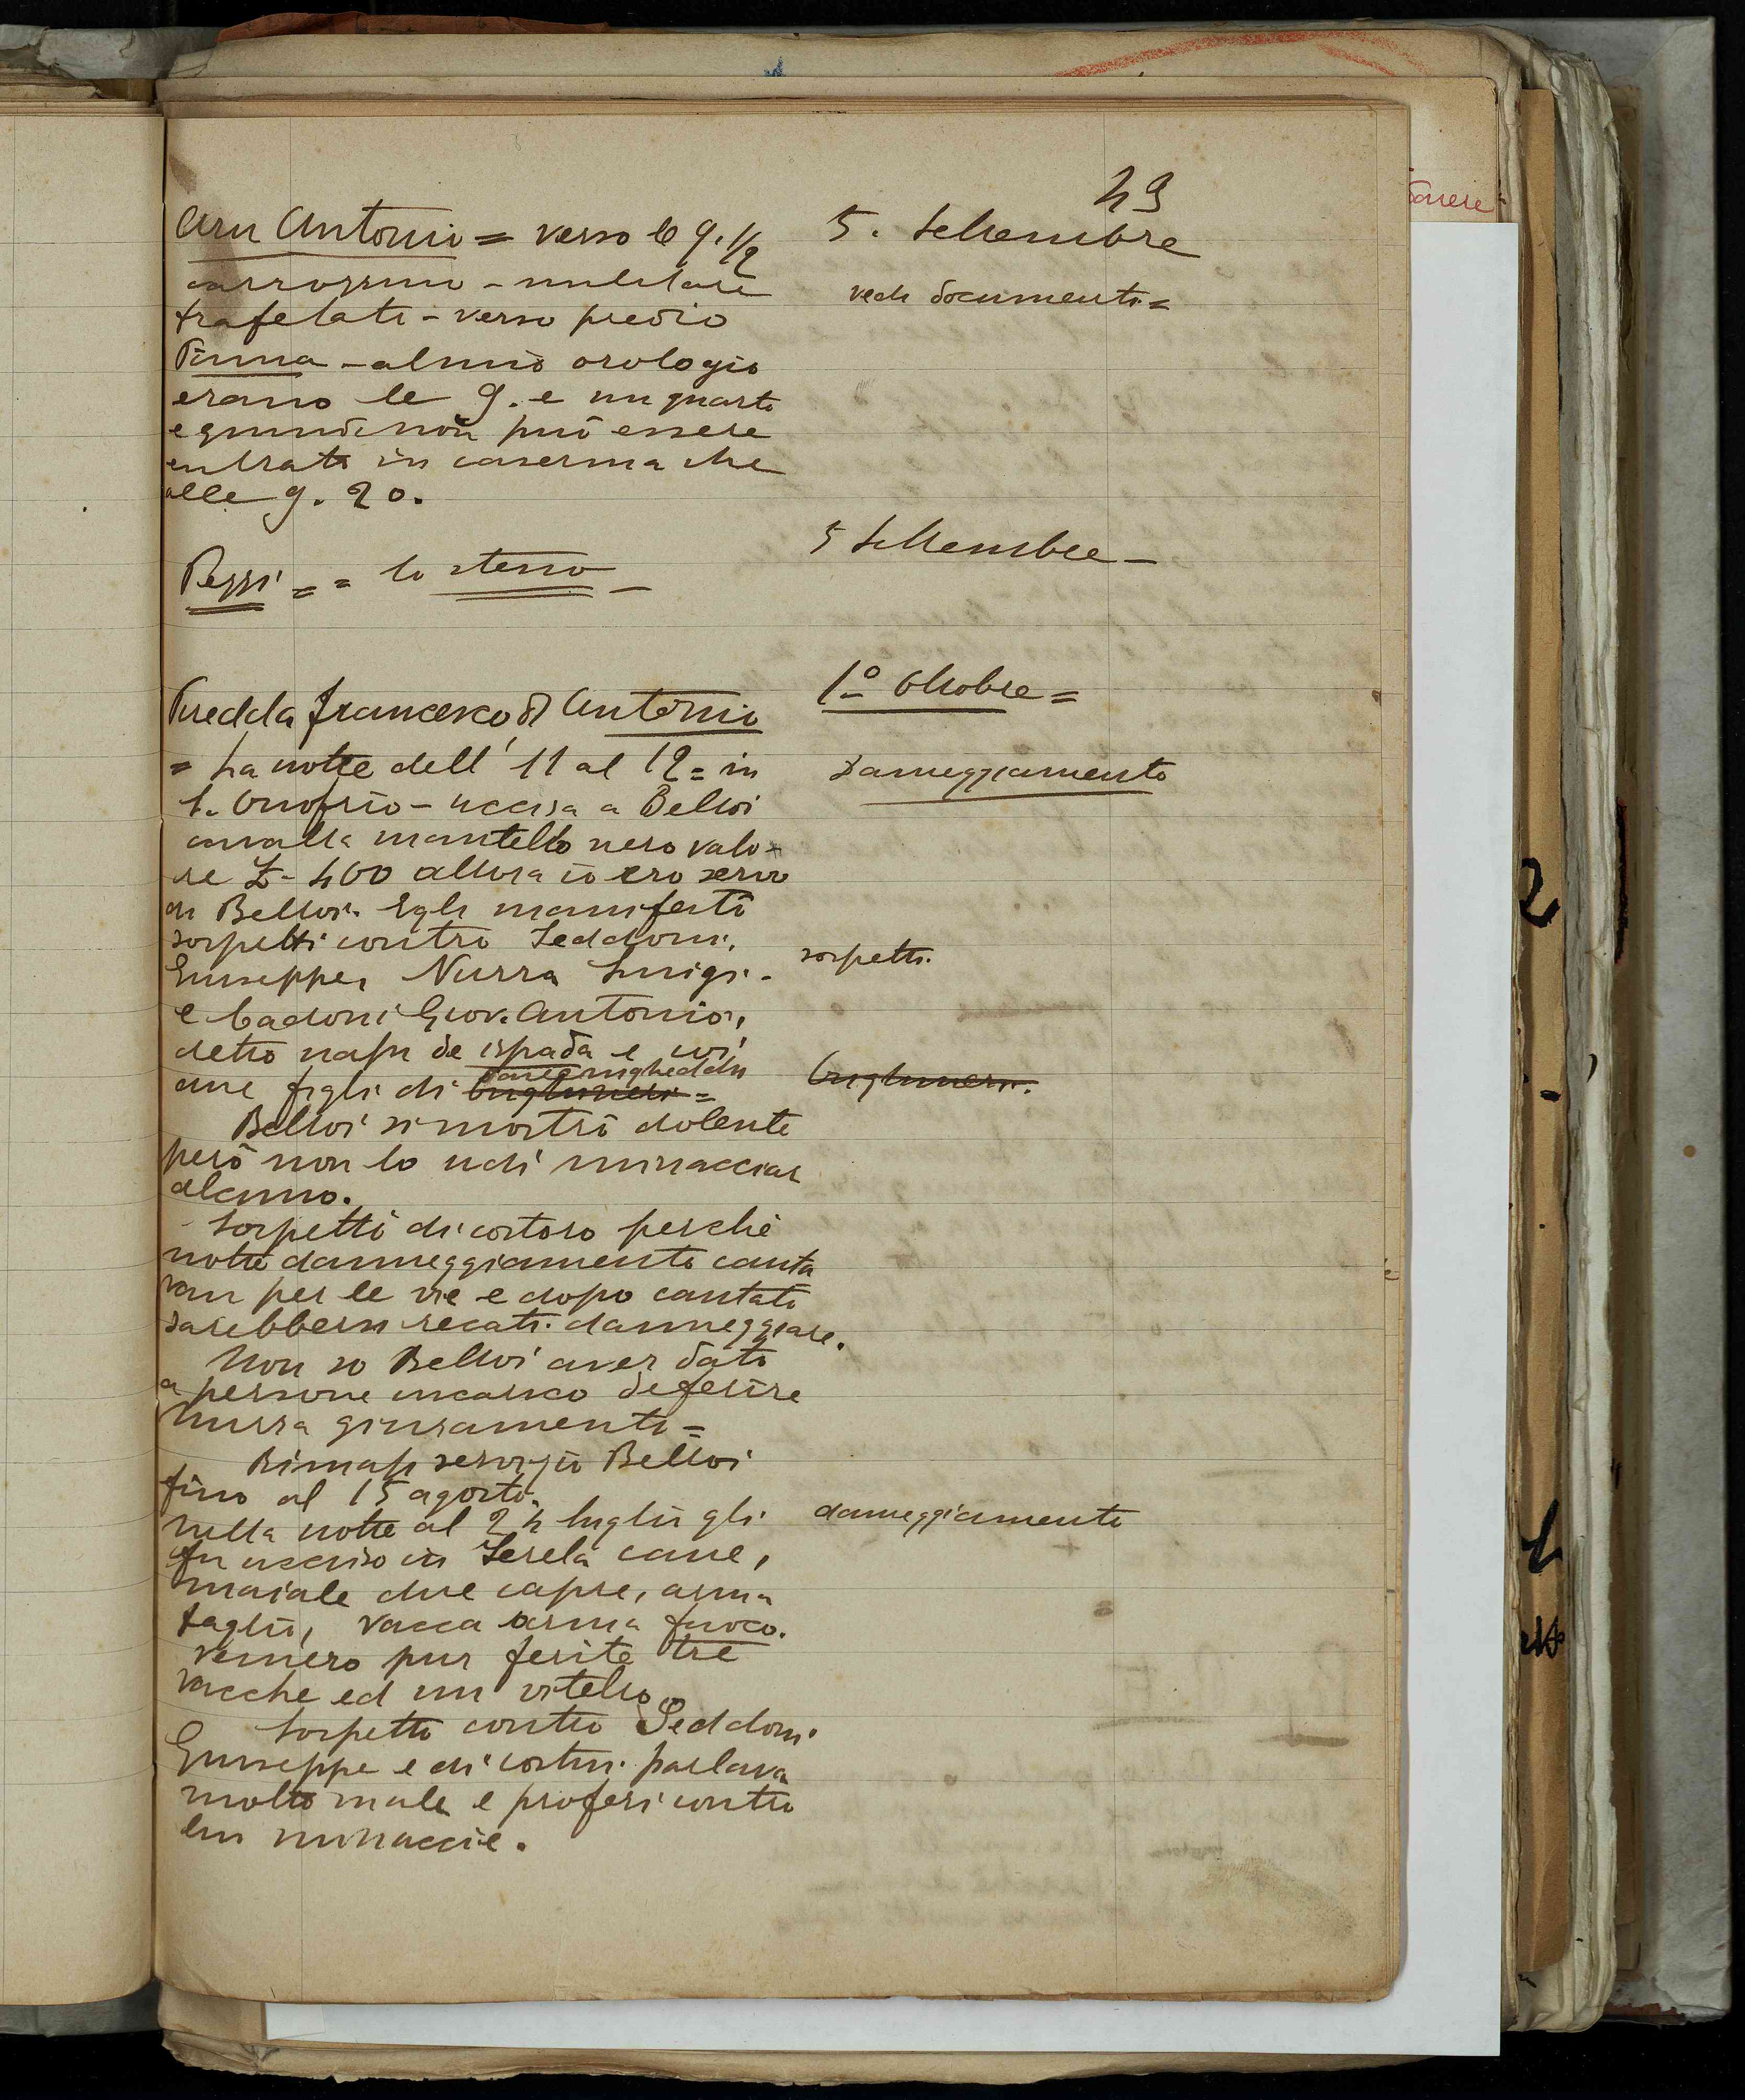 43
Aru Antonio = verso le 9. 1/2
5. Settembre
carrozzino - militare
vedi documenti =
trafelati - verso predio
Pinna - al mio orologio
erano le 9. e un quarto
e quindi non può essere
entrato in caserma che
alle 9. 20.
5 Settembre -
Pezzi = = lo stesso -
1º Ottobre =
Puedda Francesco di Antonio
= La notte dell' 11 al 12 = in
Danneggiamento
S. Onofrio - uccisa a Belloi
cavalla mantello nero valo-
re £ - 400 allora io ero servo
di Belloi. Egli manifestò
sospetti contro Seddoni,
sospetti.
Giuseppe, Nurra Luigi -
e Cadoni Giov. Antonio,
detto nasu de ispada e coi
due figli di
Belloi si mostrò dolente
però non lo udi minacciar
alcuno.
Sospetti di costoro perchè
notte danneggiamento canta
van per le vie e dopo cantato
sarebbersi recati danneggiare.
Non so Belloi aver dato
a persone incarico deferire
Nurra giuramento =
Rimasi servizio Belloi
fino al 15 agosto.
Nella notte al 24 luglio gli
danneggiamento
fu ucciso in Serela cane,
maiale due capre, arma
taglio, vacca arma fuoco.
vennero pur ferite tre
vacche ed un vitello.
Sospetto contro Seddoni
Giuseppe e di costui parlava
molto male e proferi contro
lui minaccie.